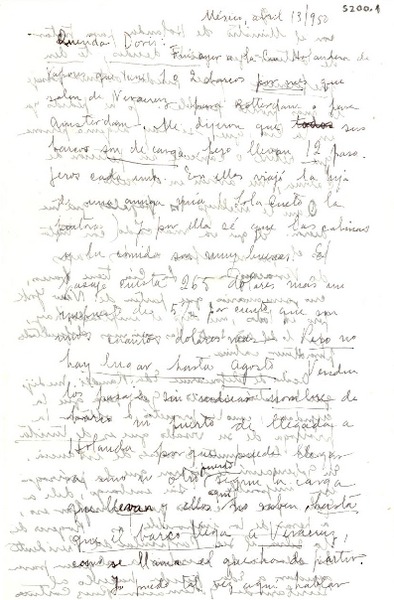 5200.1
México, abril 13/1950
Querida Doris:
Fui ayer a la Holandesa de
que hay 1 o 2 barcos por mes que
salen de Veracruz o para Rotterdam o para
Amsterdam. Me dijeron que todos sus
barcos son de carga, pero llevan 12 pasa-
jeros cada uno. En ellos viajó la hija
de una amiga mía, Lola Cueto (la
pintora) y por ella sé que las cabinas
y la comida son muy buenas. El
pasaje cuesta 265 dólares más un
impuesto de 5 por ciento que son
unos cuantos dólares más. Pero no
hay lugar hasta Agosto. Venden
el pasaje sin indicar nombre de
barco ni puerto de llegada a
Holanda porque puede llegar
a otro puerto según la carga
que llevan y ellos aquí no saben, hasta
que el barco llega a Veracruz,
como se llama el que han de partir.
Yo puedo tal vez aquí hablar